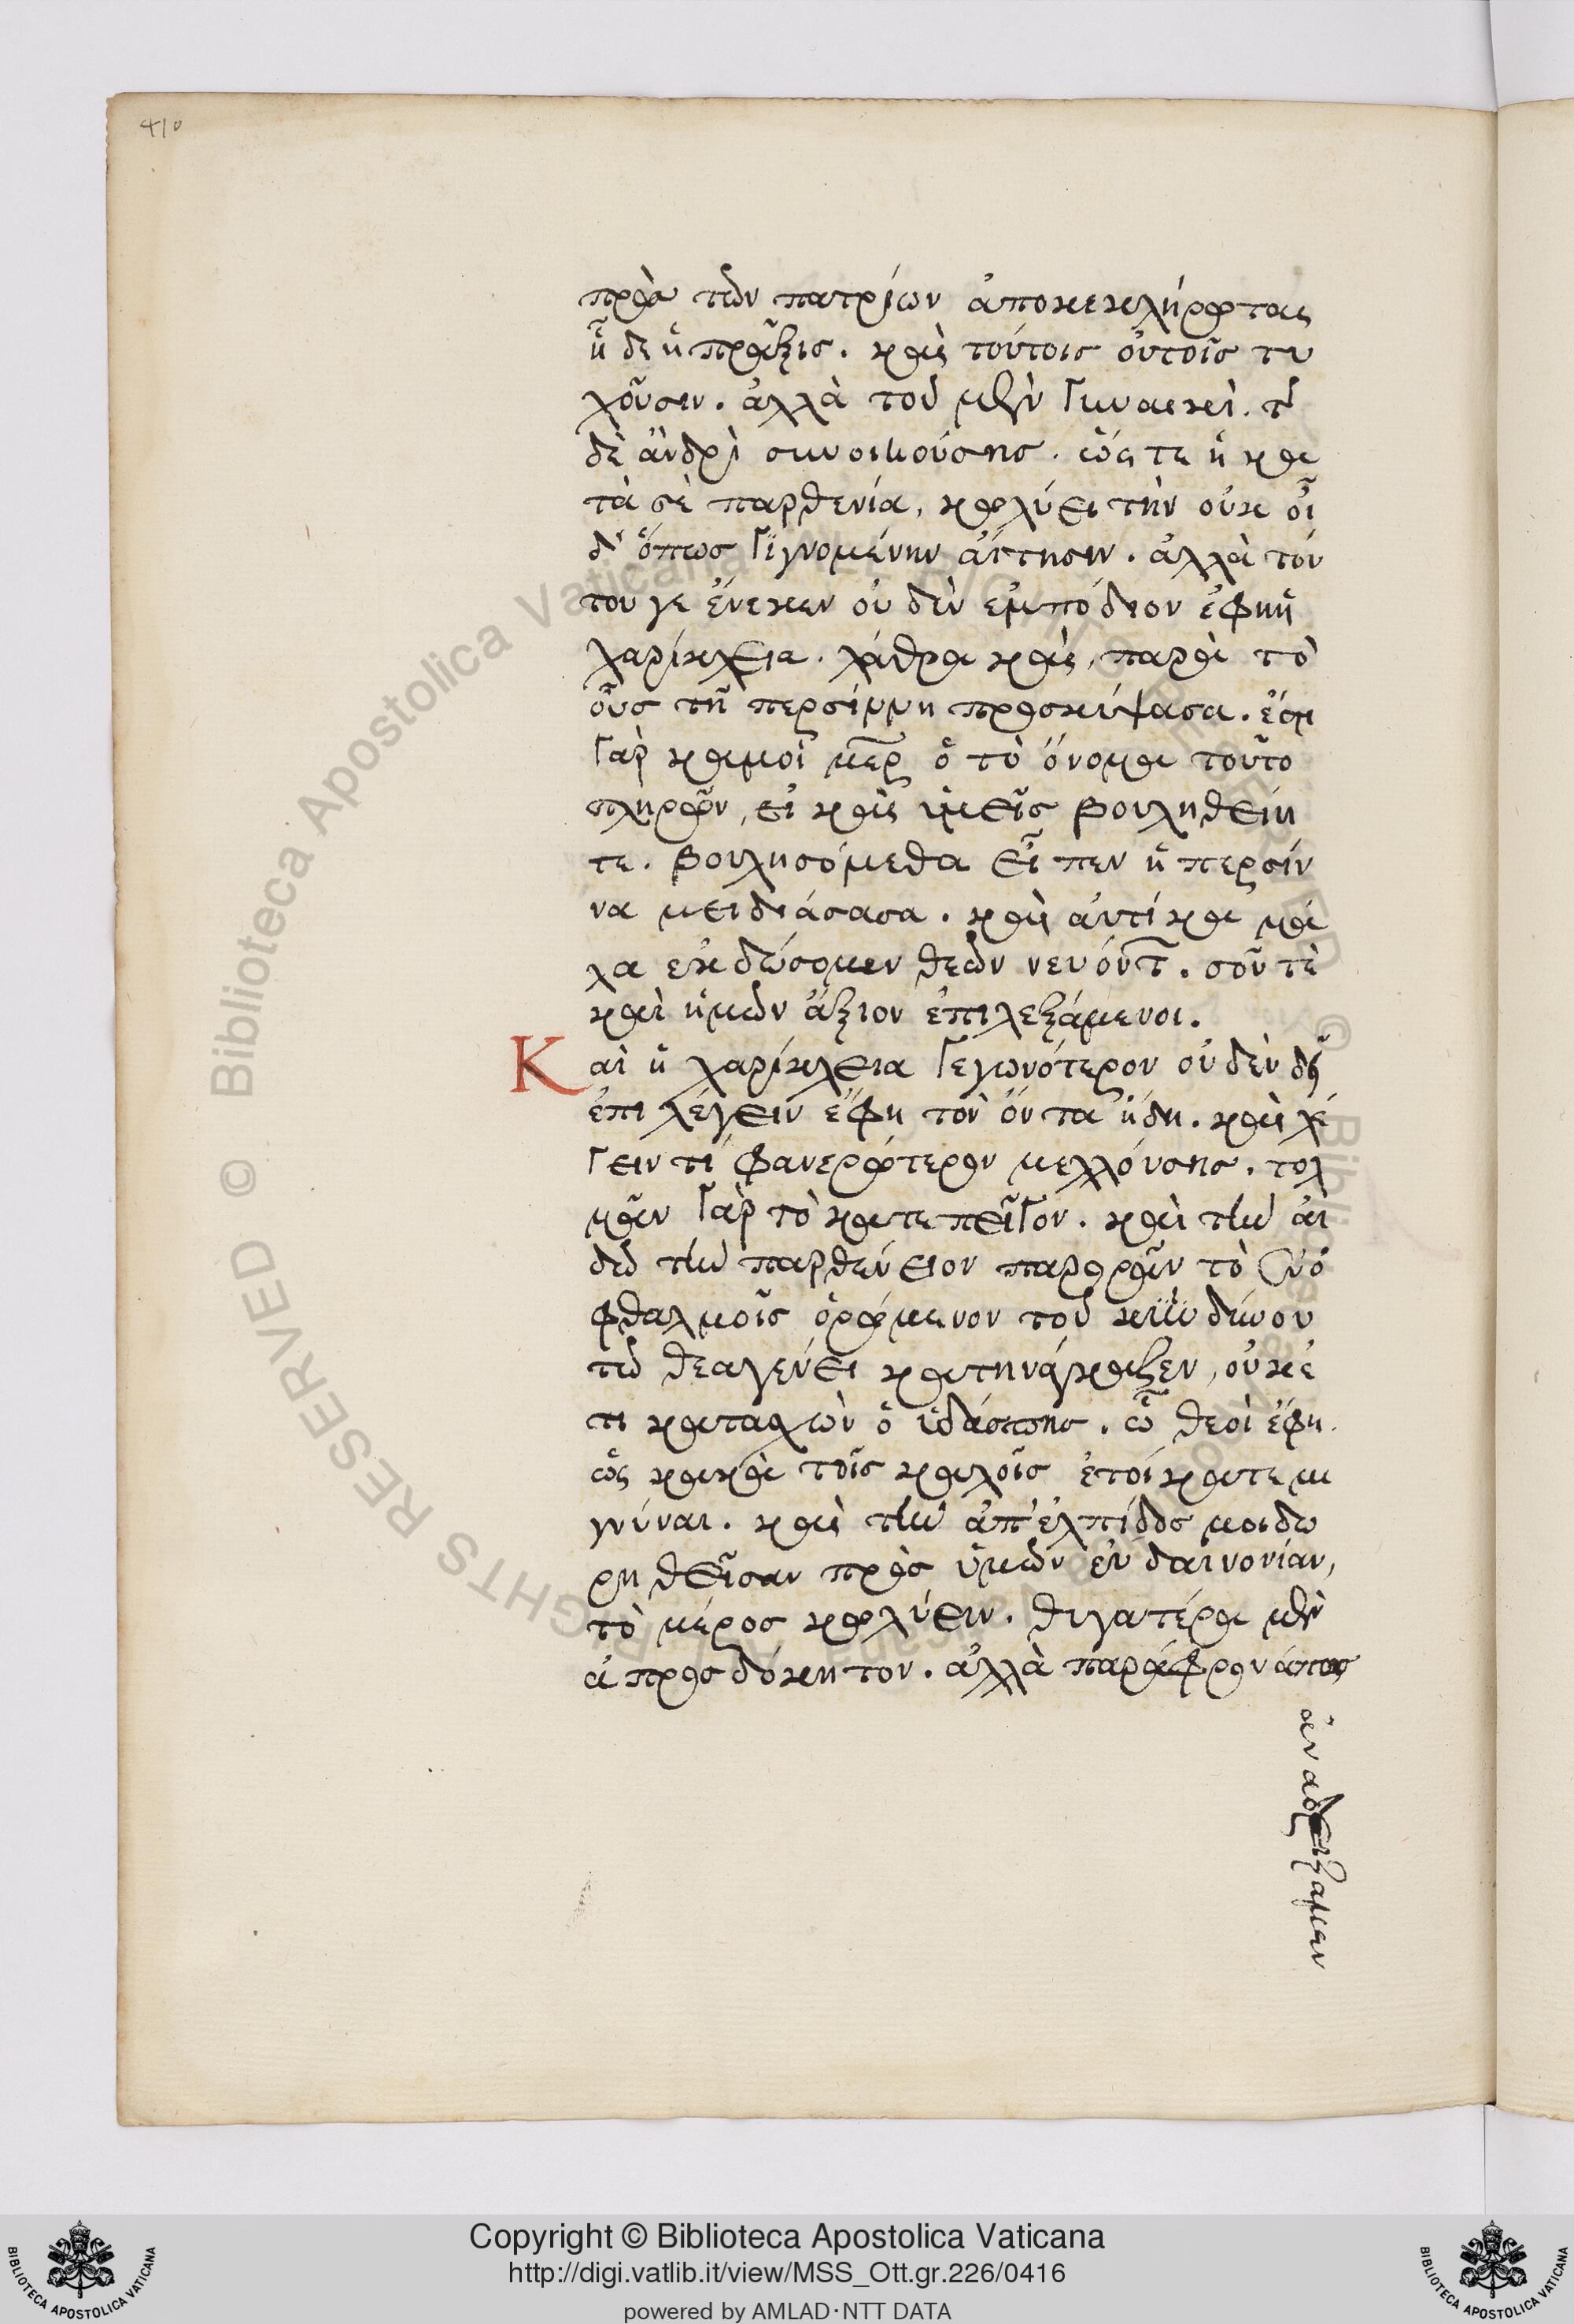 410
πρὸς τῶν πατρίων ἀποκεκλήρωται
ἥδε ἡ πρᾶξις. καὶ τούτοις οὐ τοῖς τυ
χοῦσιν. ἀλλὰ τοῦ μὲν γυναικὶ. τῆς
δὲ ἀνδρὶ συνοικούσης. ὥστε ἡ κα
τὰ σὲ παρθενία, κωλύει τὴν οὐκ οἶ
δ' ὅπως γιγνομένην αἴτησιν. ἀλλὰ τού
του γε ἕνεκεν οὐδὲν ἐμπόδιον ἔφη ἡ
χαρίκλεια. λάθρα καὶ, παρὰ τὸ
οὖς τῇ περσίννη προσκύψασα. ἔστι
γὰρ κἀμοὶ μῆτερ ὁ τὸ ὄνομα τοῦτο
πληρῶν, εἰ καὶ ὑμεῖς βουληθείη
τε. βουλησόμεθα εἶπεν ἡ περσίν
να μειδιάσασα. καὶ αὐτίκα μά
λα ἐκδώσομεν θεῶν νευόντων. σοῦ τὲ
καὶ ἡμῶν ἄξιον ἐπιλεξάμενοι.
Καὶ ἡ χαρίκλεια γεγωνότερον οὐδὲν δεῖ
ἐπιλέγειν ἔφη τὸν ὄντα ἤδη. καὶ λέ
γειν τί φανερώτερον μελλούσης. τολ
μᾶν γὰρ τὸ κατεπεῖγον. καὶ τὴν αἰ
δῶ τὴν παρθένειον παρορᾶν τὸ ἐν ὀ
φθαλμοῖς ὁρώμενον τοῦ κινδύνου
τῷ θεαγένει κατηνάγκαζεν, οὐκέ
τι κατασχὼν ὁ ὑδάσπης. ὦ θεοὶ ἔφη.
ὡς κακὰ τοῖς καλοῖς ἐτοίκατε μι
γνύναι. καὶ τὴν ἀπ' ἐλπίδος μοι δω
ρηθεῖσαν πρὸς ὑμῶν εὐδαιμονίαν,
τὸ μέρος κωλύειν. θυγατέρα μὲν
ἀπροσδόκητον. ἀλλὰ παράφρον ἅπασ
ἀναδείξαμεν
Copyright © Biblioteca Apostolica Vaticana
http://digi.vatlib.it/view/MSS_Ott.gr.226/0416
powered by AMLAD·NTT DATA
BIBLIOTECA APOSTOLICA VATICANA
BIBLIOTECA APOSTOLICA VATICANA